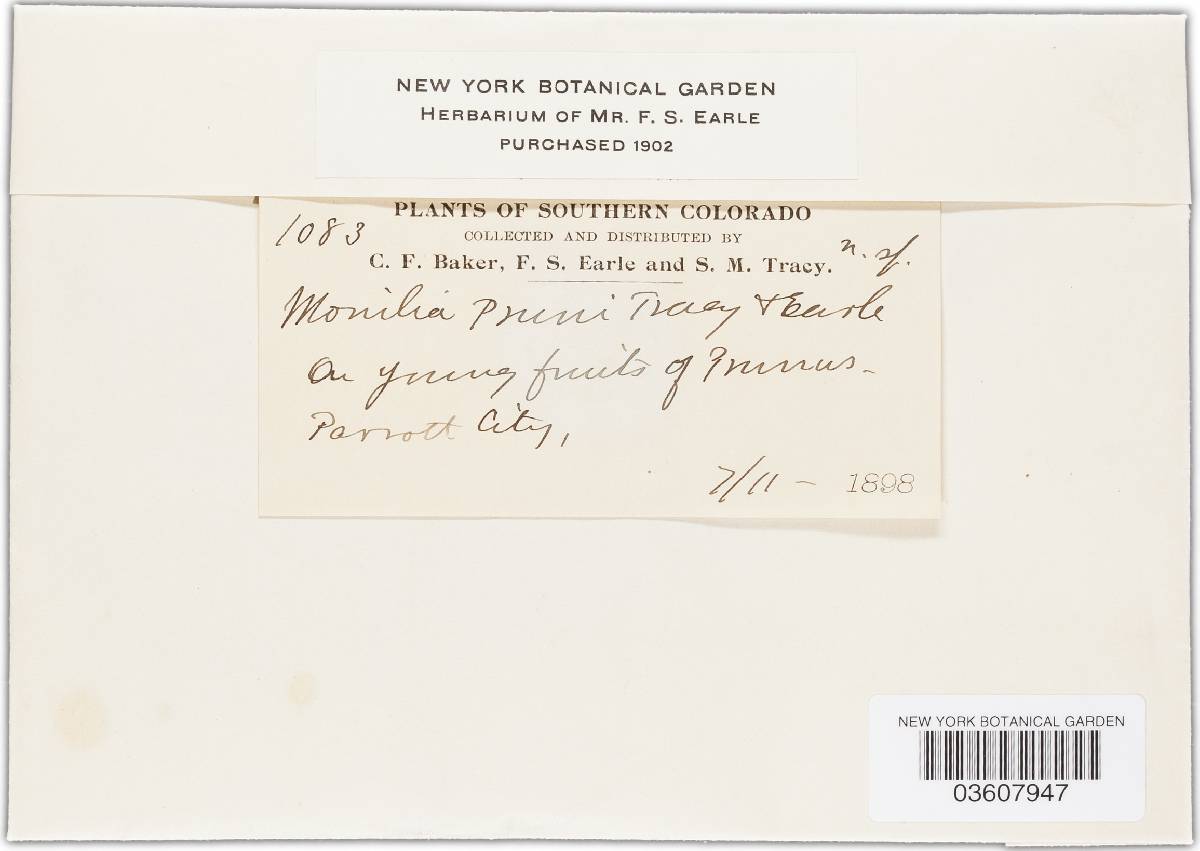 NEW YORK BOTANICAL GARDEN
HERBARIUM OF MR. F. S. EARLE
PURCHASED 1902
PLANTS OF SOUTHERN COLORADO
1083
COLLECTED AND DISTRIBUTED BY
C. F. Baker, F. S. Earle and S. M. Tracy. n. sp.
Monilia Pruni Tracy & Earle
On young fruits of Prunus-
Parrott City,
7/11 - 1898
NEW YORK BOTANICAL GARDEN
03607947